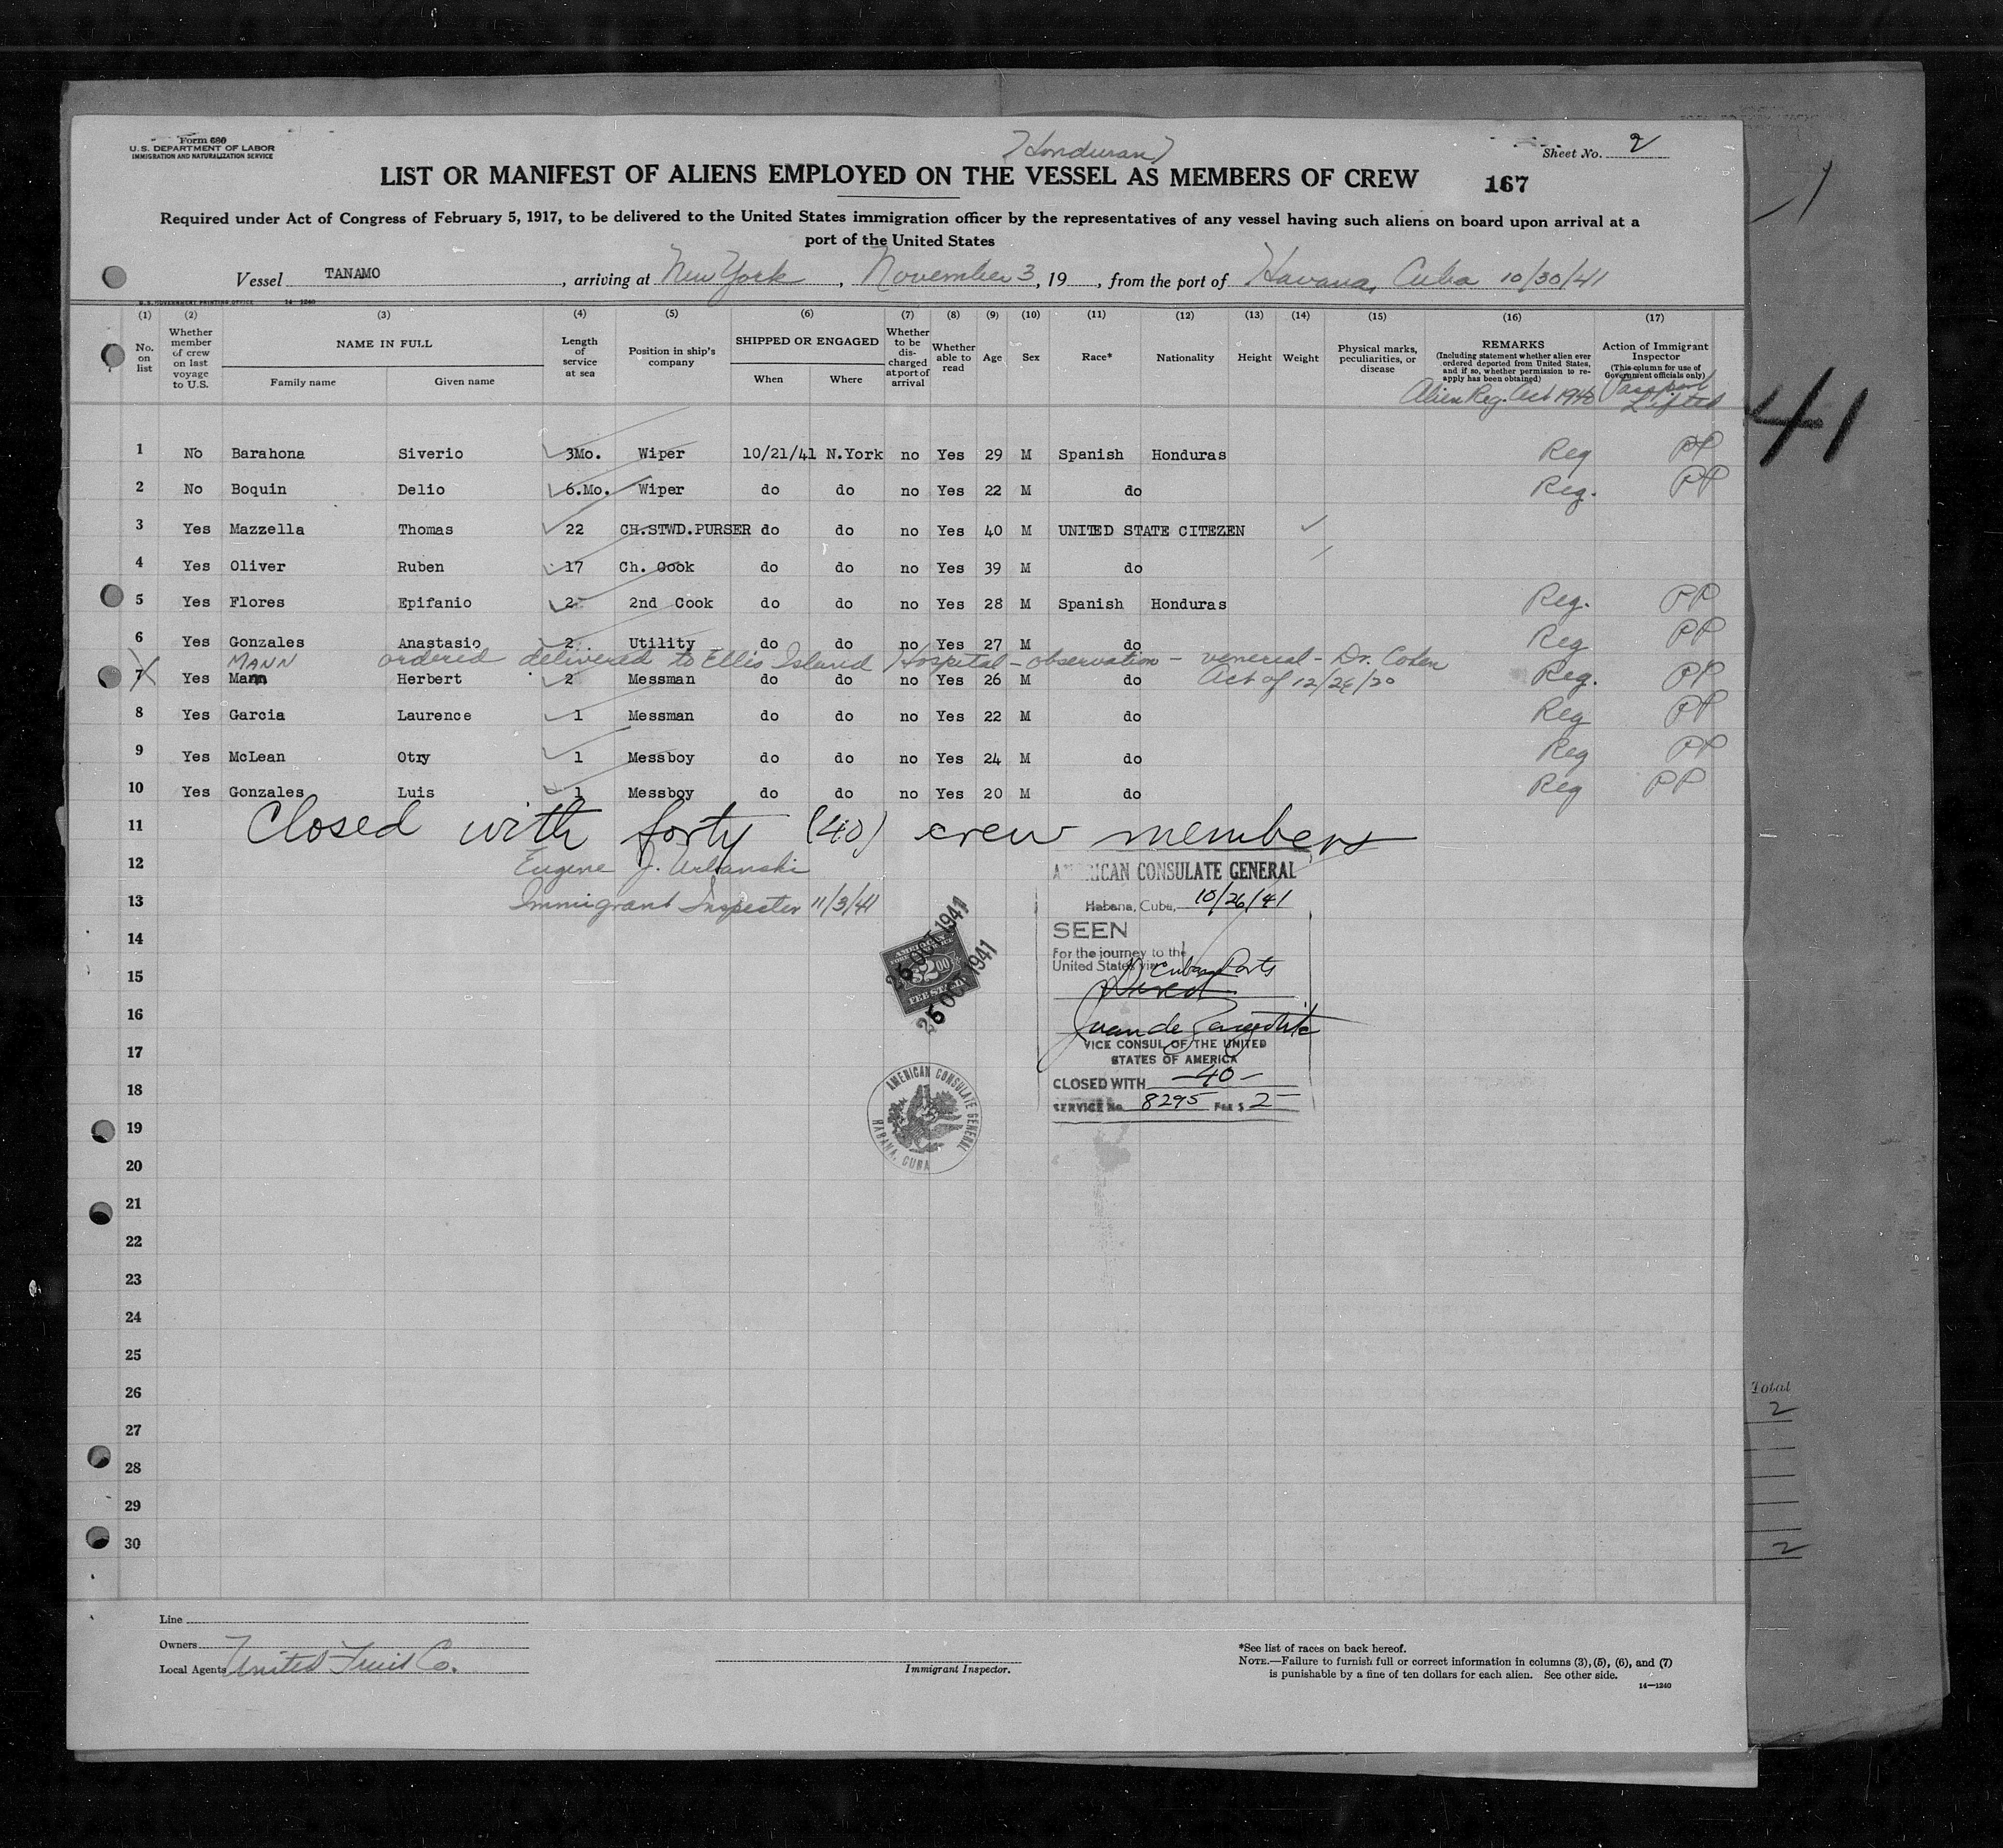 Form 680
U.S. DEPARTMENT OF LABOR
IMMIGRATION AND NATURALIZATION SERVICE
(Honduran)
Sheet No. 2
LIST OR MANIFEST OF ALIENS EMPLOYED ON THE VESSEL AS MEMBERS OF CREW
167
Required under Act of Congress of February 5, 1917, to be delivered to the United States immigration officer by the representatives of any vessel having such aliens on board upon arrival at a
port of the United States
Vessel TANAMO, arriving at New York, November 3, 19, from the port of Havana, Cuba 10/30/41
U.S. GOVERNMENT PRINTING OFFICE 14-1240
(1) (2) (3) (4) (5) (6) (7) (8) (9) (10) (11) (12) (13) (14) (15) (16) (17)
No. on list
Whether member of crew on last voyage to U.S.
NAME IN FULL
Family name Given name
Length of service at sea
Position in ship's company
SHIPPED OR ENGAGED
When Where
Whether to be discharged at port of arrival
Whether able to read
Age
Sex
Race*
Nationality
Height
Weight
Physical marks, peculiarities, or disease
REMARKS
(Including statement whether alien ever ordered deported from United States, and if so, whether permission to reapply has been obtained)
Alien Reg. Act 1940
Action of Immigrant Inspector
(This column for use of Government officials only)
Passport Lifted
41
1 No Barahona Siverio 3Mo. Wiper 10/21/41 N.York no Yes 29 M Spanish Honduras Reg PP
2 No Boquin Delio 6.Mo. Wiper do do no Yes 22 M do Reg. PP
3 Yes Mazzella Thomas 22 CH.STWD.PURSER do do no Yes 40 M UNITED STATE CITEZEN
4 Yes Oliver Ruben 17 Ch. Cook do do no Yes 39 M do
5 Yes Flores Epifanio 2 2nd Cook do do no Yes 28 M Spanish Honduras Reg. PP
6 Yes Gonzales Anastasio 2 Utility do do no Yes 27 M do Reg PP
MANN ordered delivered to Ellis Island Hospital - observation - venereal - Dr. Cohen
7 Yes Mann Herbert 2 Messman do do no Yes 26 M do Act of 12/26/20 Reg. PP
8 Yes Garcia Laurence 1 Messman do do no Yes 22 M do Reg PP
9 Yes McLean Otry 1 Messboy do do no Yes 24 M do Reg PP
10 Yes Gonzales Luis 1 Messboy do do no Yes 20 M do Reg PP
11 Closed with forty (40) crew members
12 Eugene J. Urbanski
13 Immigrant Inspector 11/3/41
14
15
16
17
18
19
20
21
22
23
24
25
26
27
28
29
30
AMERICAN CONSULATE GENERAL
Habana, Cuba, 10/26/41
SEEN
For the journey to the
United States via
Cuban Ports
Direct
VICE CONSUL OF THE UNITED
STATES OF AMERICA
CLOSED WITH -40-
SERVICE No. 8295 FEE $ 2-
AMERICAN
$2.00
FEE STAMP
25 OCT 1941
25 OCT 1941
AMERICAN CONSULATE GENERAL
HABANA, CUBA
Total
2
2
Line
Owners
Local Agents United Fruit Co.
Immigrant Inspector.
*See list of races on back hereof.
NOTE.—Failure to furnish full or correct information in columns (3), (5), (6), and (7)
is punishable by a fine of ten dollars for each alien. See other side.
14—1240